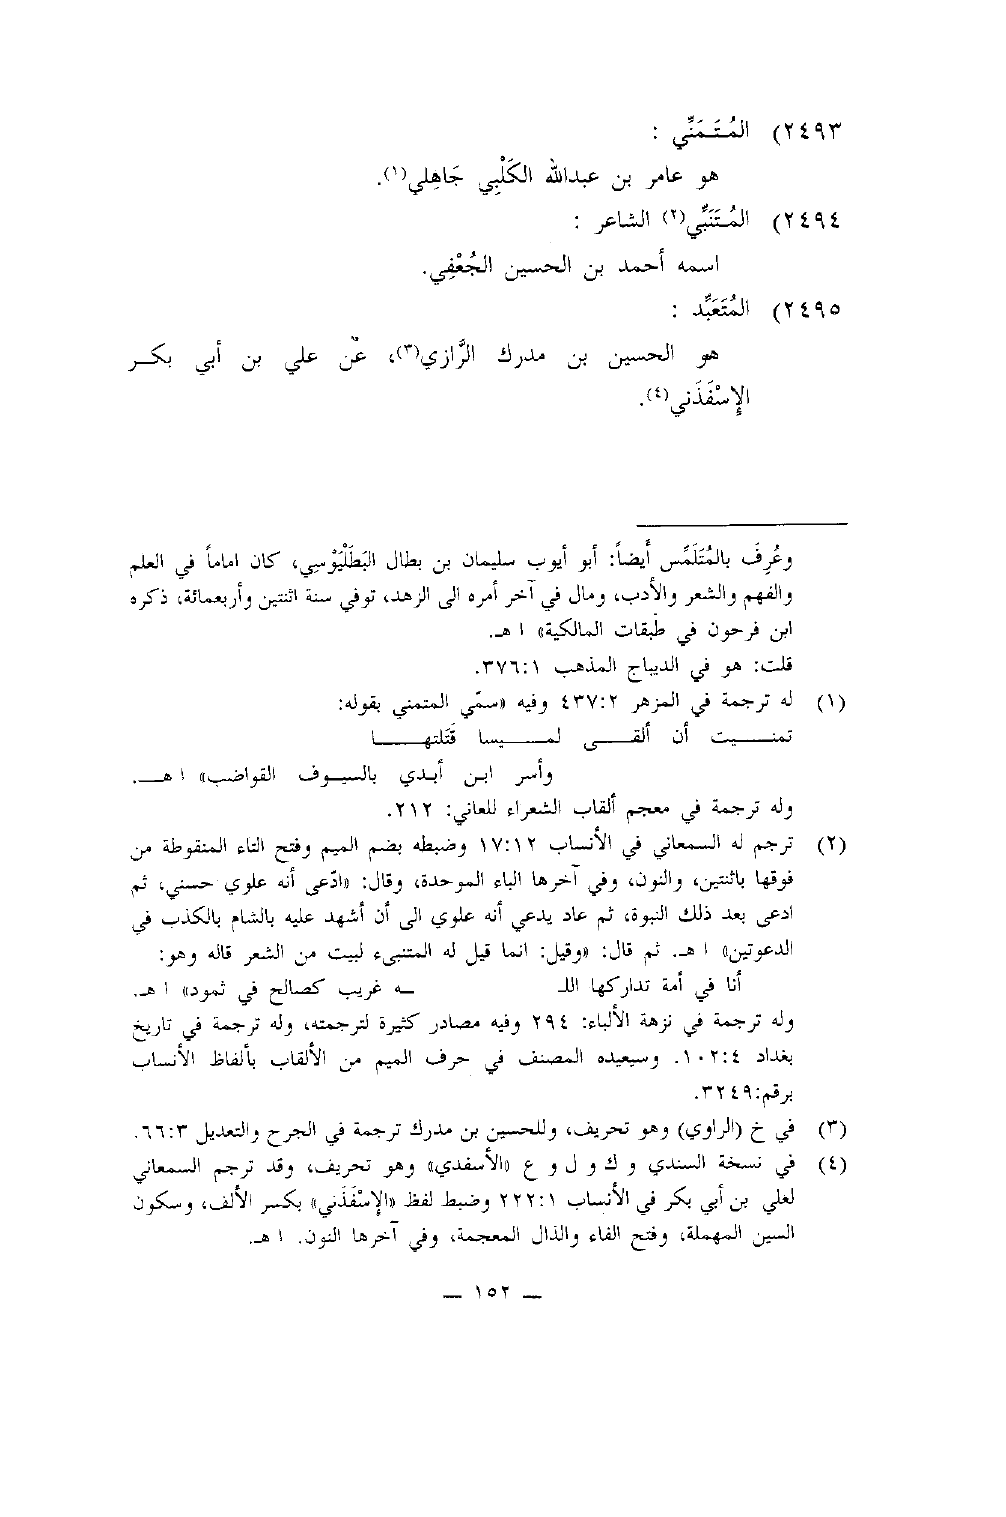 ٢٤٩٣) المُتَـمَنِّي :
هو عامر بن عبدالله الكَلْبِي جَاهِلي(١).
٢٤٩٤) المُتَنَبِّي(٢) الشاعر :
اسمه أحمد بن الحسين الجُعْفِي.
٢٤٩٥) المُتَعَبِّد :
هو الحسين بن مدرك الرَّازي(٣)، عَن علي بن أبي بكر
الإِسْفَذَني(٤).
وعُرِفَ بالمُتَلَمِّس أَيضاً: أبو أيوب سليمان بن بطال البَطَلْيَوْسِي، كان اماماً في العلم
والفهم والشعر والأدب، ومال في آخر أمره الى الزهد، توفي سنة اثنتين وأربعمائة، ذكره
ابن فرحون في طبقات المالكية» ا هـ.
قلت: هو في الديباج المذهب ٣٧٦:١.
(١) له ترجمة في المزهر ٤٣٧:٢ وفيه «سمّي المتمني بقوله:
تمنـــيت أن ألقـــى لمـــيسا قَتَلتهـــا
وأسر ابن أبـدي بالسيـوف القواضب» ا هـ.
وله ترجمة في معجم ألقاب الشعراء للعاني: ٢١٢.
(٢) ترجم له السمعاني في الأنساب ١٧:١٢ وضبطه بضم الميم وفتح التاء المنقوطة من
فوقها باثنتين، والنون، وفي آخرها الباء الموحدة، وقال: «ادّعى أنه علوي حسني، ثم
ادعى بعد ذلك النبوة، ثم عاد يدعي أنه علوي الى أن أشهد عليه بالشام بالكذب في
الدعوتين» ا هـ. ثم قال: «وقيل: انما قيل له المتنبىء لبيت من الشعر قاله وهو:
أنا في أمة تداركها اللـ ـه غريب كصالح في ثمود» ا هـ.
وله ترجمة في نزهة الألباء: ٢٩٤ وفيه مصادر كثيرة لترجمته، وله ترجمة في تاريخ
بغداد ١٠٢:٤. وسيعيده المصنف في حرف الميم من الألقاب بألفاظ الأنساب
برقم:٣٢٤٩.
(٣) في خ (الراوي) وهو تحريف، وللحسين بن مدرك ترجمة في الجرح والتعديل ٦٦:٣.
(٤) في نسخة السندي و ك و ل و ع «الأسفدي» وهو تحريف، وقد ترجم السمعاني
لعلي بن أبي بكر في الأنساب ٢٢٢:١ وضبط لفظ «الإِسْفَذَني» بكسر الألف، وسكون
السين المهملة، وفتح الفاء والذال المعجمة، وفي آخرها النون. ا هـ.
— ١٥٢ —